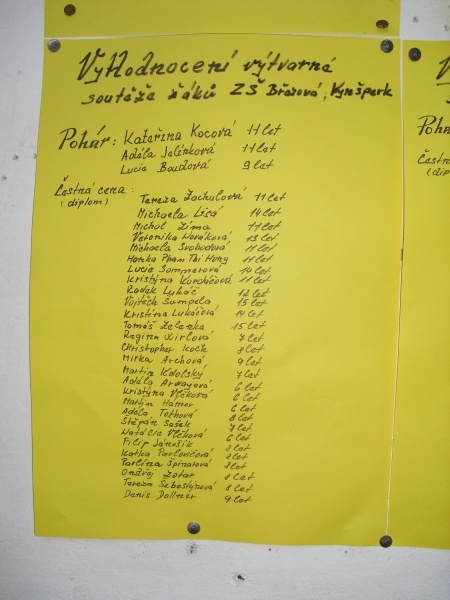 Vyhodnocení výtvarné
soutěže žáků ZŠ Březová, Kynšperk
Pohár: Kateřina Kocová 11 let
Adéla Jelínková 11 let
Lucie Boudová 9 let
Čestná cena: Tereza Zachulová 11 let
(diplom) Michaela Lisá 14 let
Michal Zíma 11 let
Veronika Nováková 13 let
Michaela Svobodová 11 let
Honka Pham Thi Hong 11 let
Lucie Sommerová 14 let
Kristýna 11 let
Radek Lukáč 12 let
Vojtěch Sumpela 15 let
Kristina Lukáčová 14 let
Tomáš Zelenka 15 let
Regina 7 let
Christopher Koch 8 let
Mirka Archová 9 let
Martin Kdolský 7 let
Adéla 6 let
Kristýna Vlčková 6 let
Martin Hamor 6 let
Adéla Tothová 8 let
Štěpán Sašek 7 let
Natálie Vlčková 6 let
Filip Janošík let
Katka Pavlovičová let
Pavlína Špinarová let
Ondřej let
Tereza Sebastýnová 8 let
Denis Dollner 9 let
Čestná
(dip